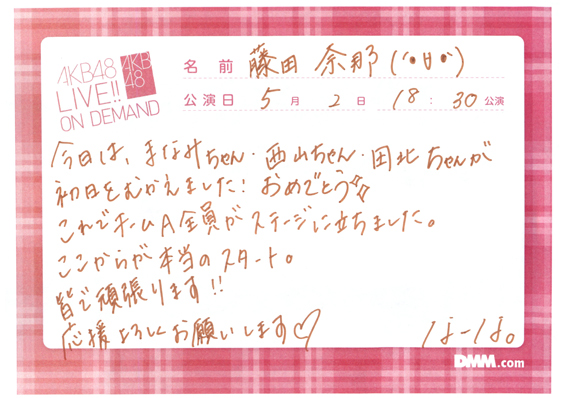 AKB48
LIVE!!
ON DEMAND
AKB
48
名前 藤田 奈那 (•∀•)
公演日 5月 2日 18:30公演
今日は、まなみちゃん・西山ちゃん・田北ちゃんが
初日をむかえました! おめでとう☆☆
これでチームA全員がステージに立ちました。
ここからが本当のスタート。
皆で頑張ります!!
応援よろしくお願いします♡
なーな。
DMM.com